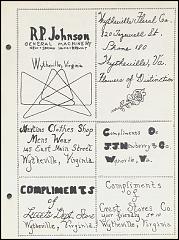 R.P. Johnson
GENERAL MACHINERY
Wytheville, Virginia
Wytheville Floral Co.
120 Tazewell St.
Phone 180
Wytheville, Va.
Flowers of Distinction
Clothes Shop
Mens Wear
145 East Main Street
Wytheville, Virginia.
Compliments Of
J.J. Newberry & Co.
Wytheville, Va.
COMPLIMENTS
of
Dept. Store
Wytheville, Virginia
Compliments
of
Crest Stores Co.
your friendly 5¢ & 10
Wytheville, Virginia